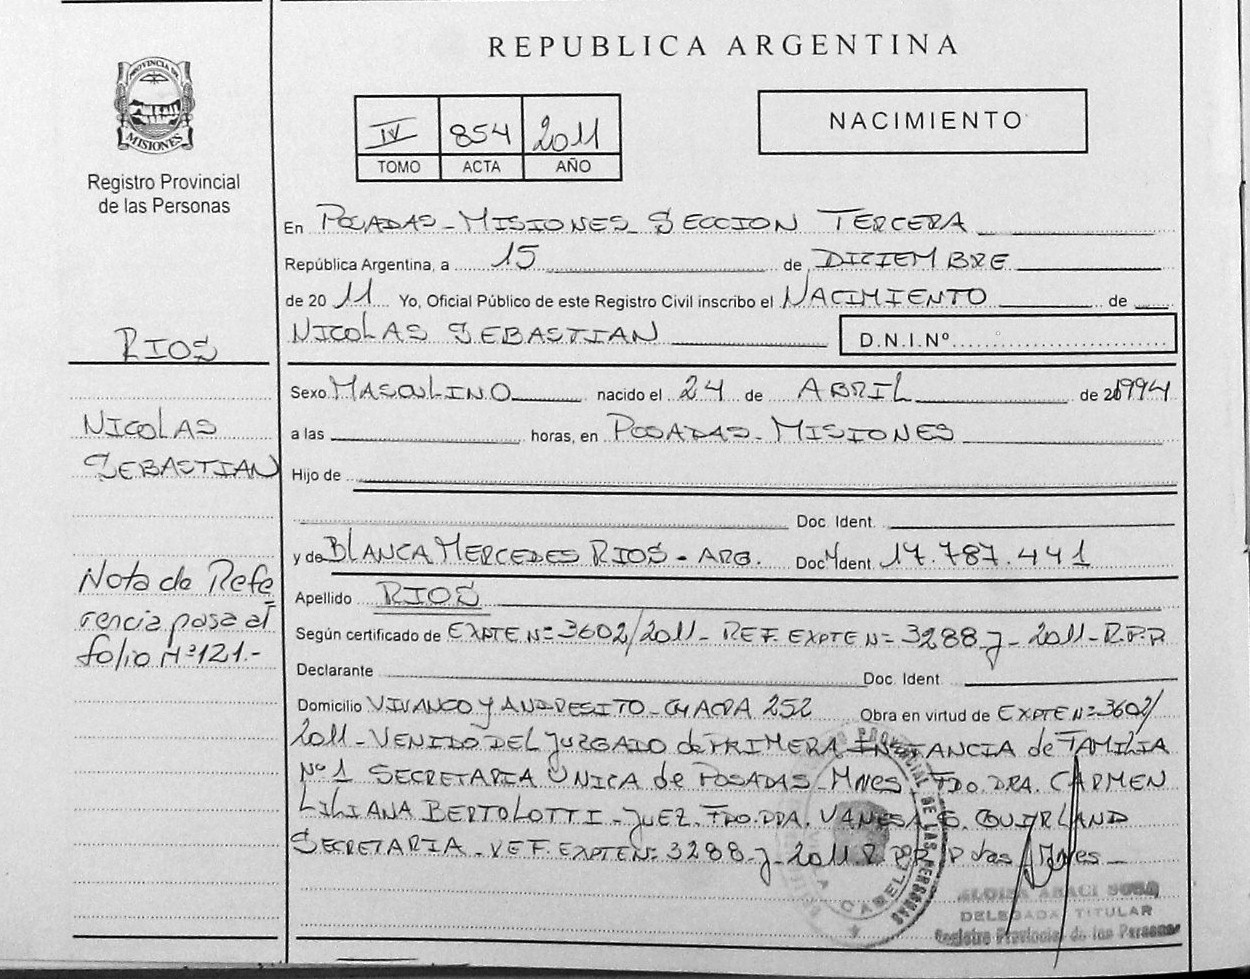 REPUBLICA ARGENTINA
PROVINCIA DE
MISIONES
Registro Provincial
de las Personas
IV 854 2011
TOMO ACTA AÑO
NACIMIENTO
En POSADAS - MISIONES - SECCION TERCERA
República Argentina, a 15 de DICIEMBRE
de 2011 Yo, Oficial Público de este Registro Civil inscribo el NACIMIENTO de
NICOLAS SEBASTIAN D.N.I.Nº
RIOS
Sexo MASCULINO nacido el 24 de ABRIL de 1994
NICOLAS
SEBASTIAN
a las horas, en POSADAS - MISIONES
Hijo de
Doc. Ident.
y de BLANCA MERCEDES RIOS - ARG. Doc. Ident. 17.787.441
Nota de Refe
rencia pasa al
folio Nº 121.-
Apellido RIOS
Según certificado de EXPTE Nº 3602/2011 - REF. EXPTE Nº 3288-J-2011-R.P.P
Declarante Doc. Ident.
Domicilio VIVANCO Y ANDRESITO - CHACRA 252 Obra en virtud de EXPTE Nº 3602/
2011 - VENIDO DEL JUZGADO de PRIMERA INSTANCIA de FAMILIA
Nº 1 SECRETARIA UNICA de POSADAS - Mnes. FDO. DRA. CARMEN
LILIANA BERTOLOTTI - JUEZ. FDO. DRA. VANESA G.
SECRETARIA - REF. EXPTE Nº 3288-J-2011 R.P.P. Pdas Mnes -
DELEGADA TITULAR
Registro Provincial de las Personas